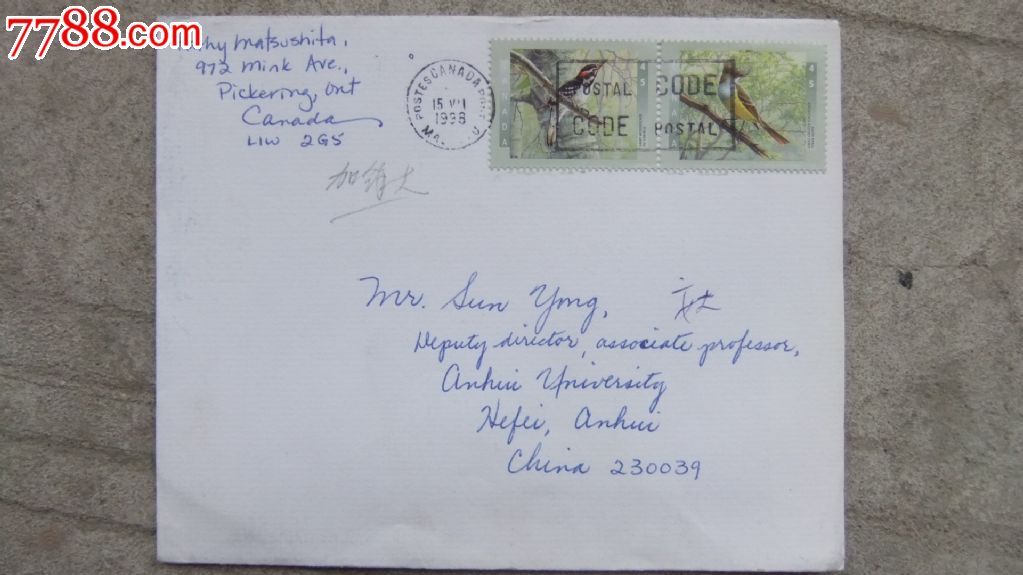 7788.com
Matsushita,
972 Mink Ave.,
Pickering, Ont
Canada
L1W 2G5
POSTES CANADA POST
15 VII
1998
POSTAL CODE
CODE POSTAL
45
加拿大
Mr. Sun Yong,
Deputy director, associate professor,
Anhui University
Hefei, Anhui
China 230039